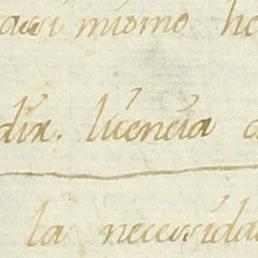 asi mismo he
dix. licencia
la necesida